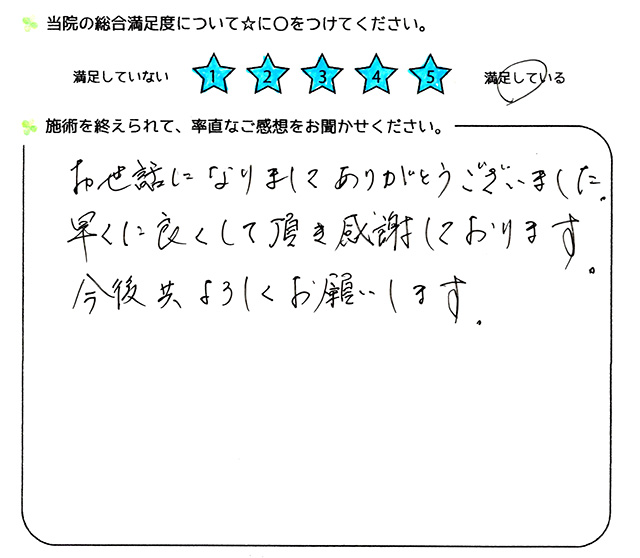 当院の総合満足度について☆に○をつけてください。
満足していない 1 2 3 4 5 満足している
施術を終えられて、率直なご感想をお聞かせください。
お世話になりましてありがとうございました。
早くに良くして頂き感謝しております。
今後共よろしくお願いします。